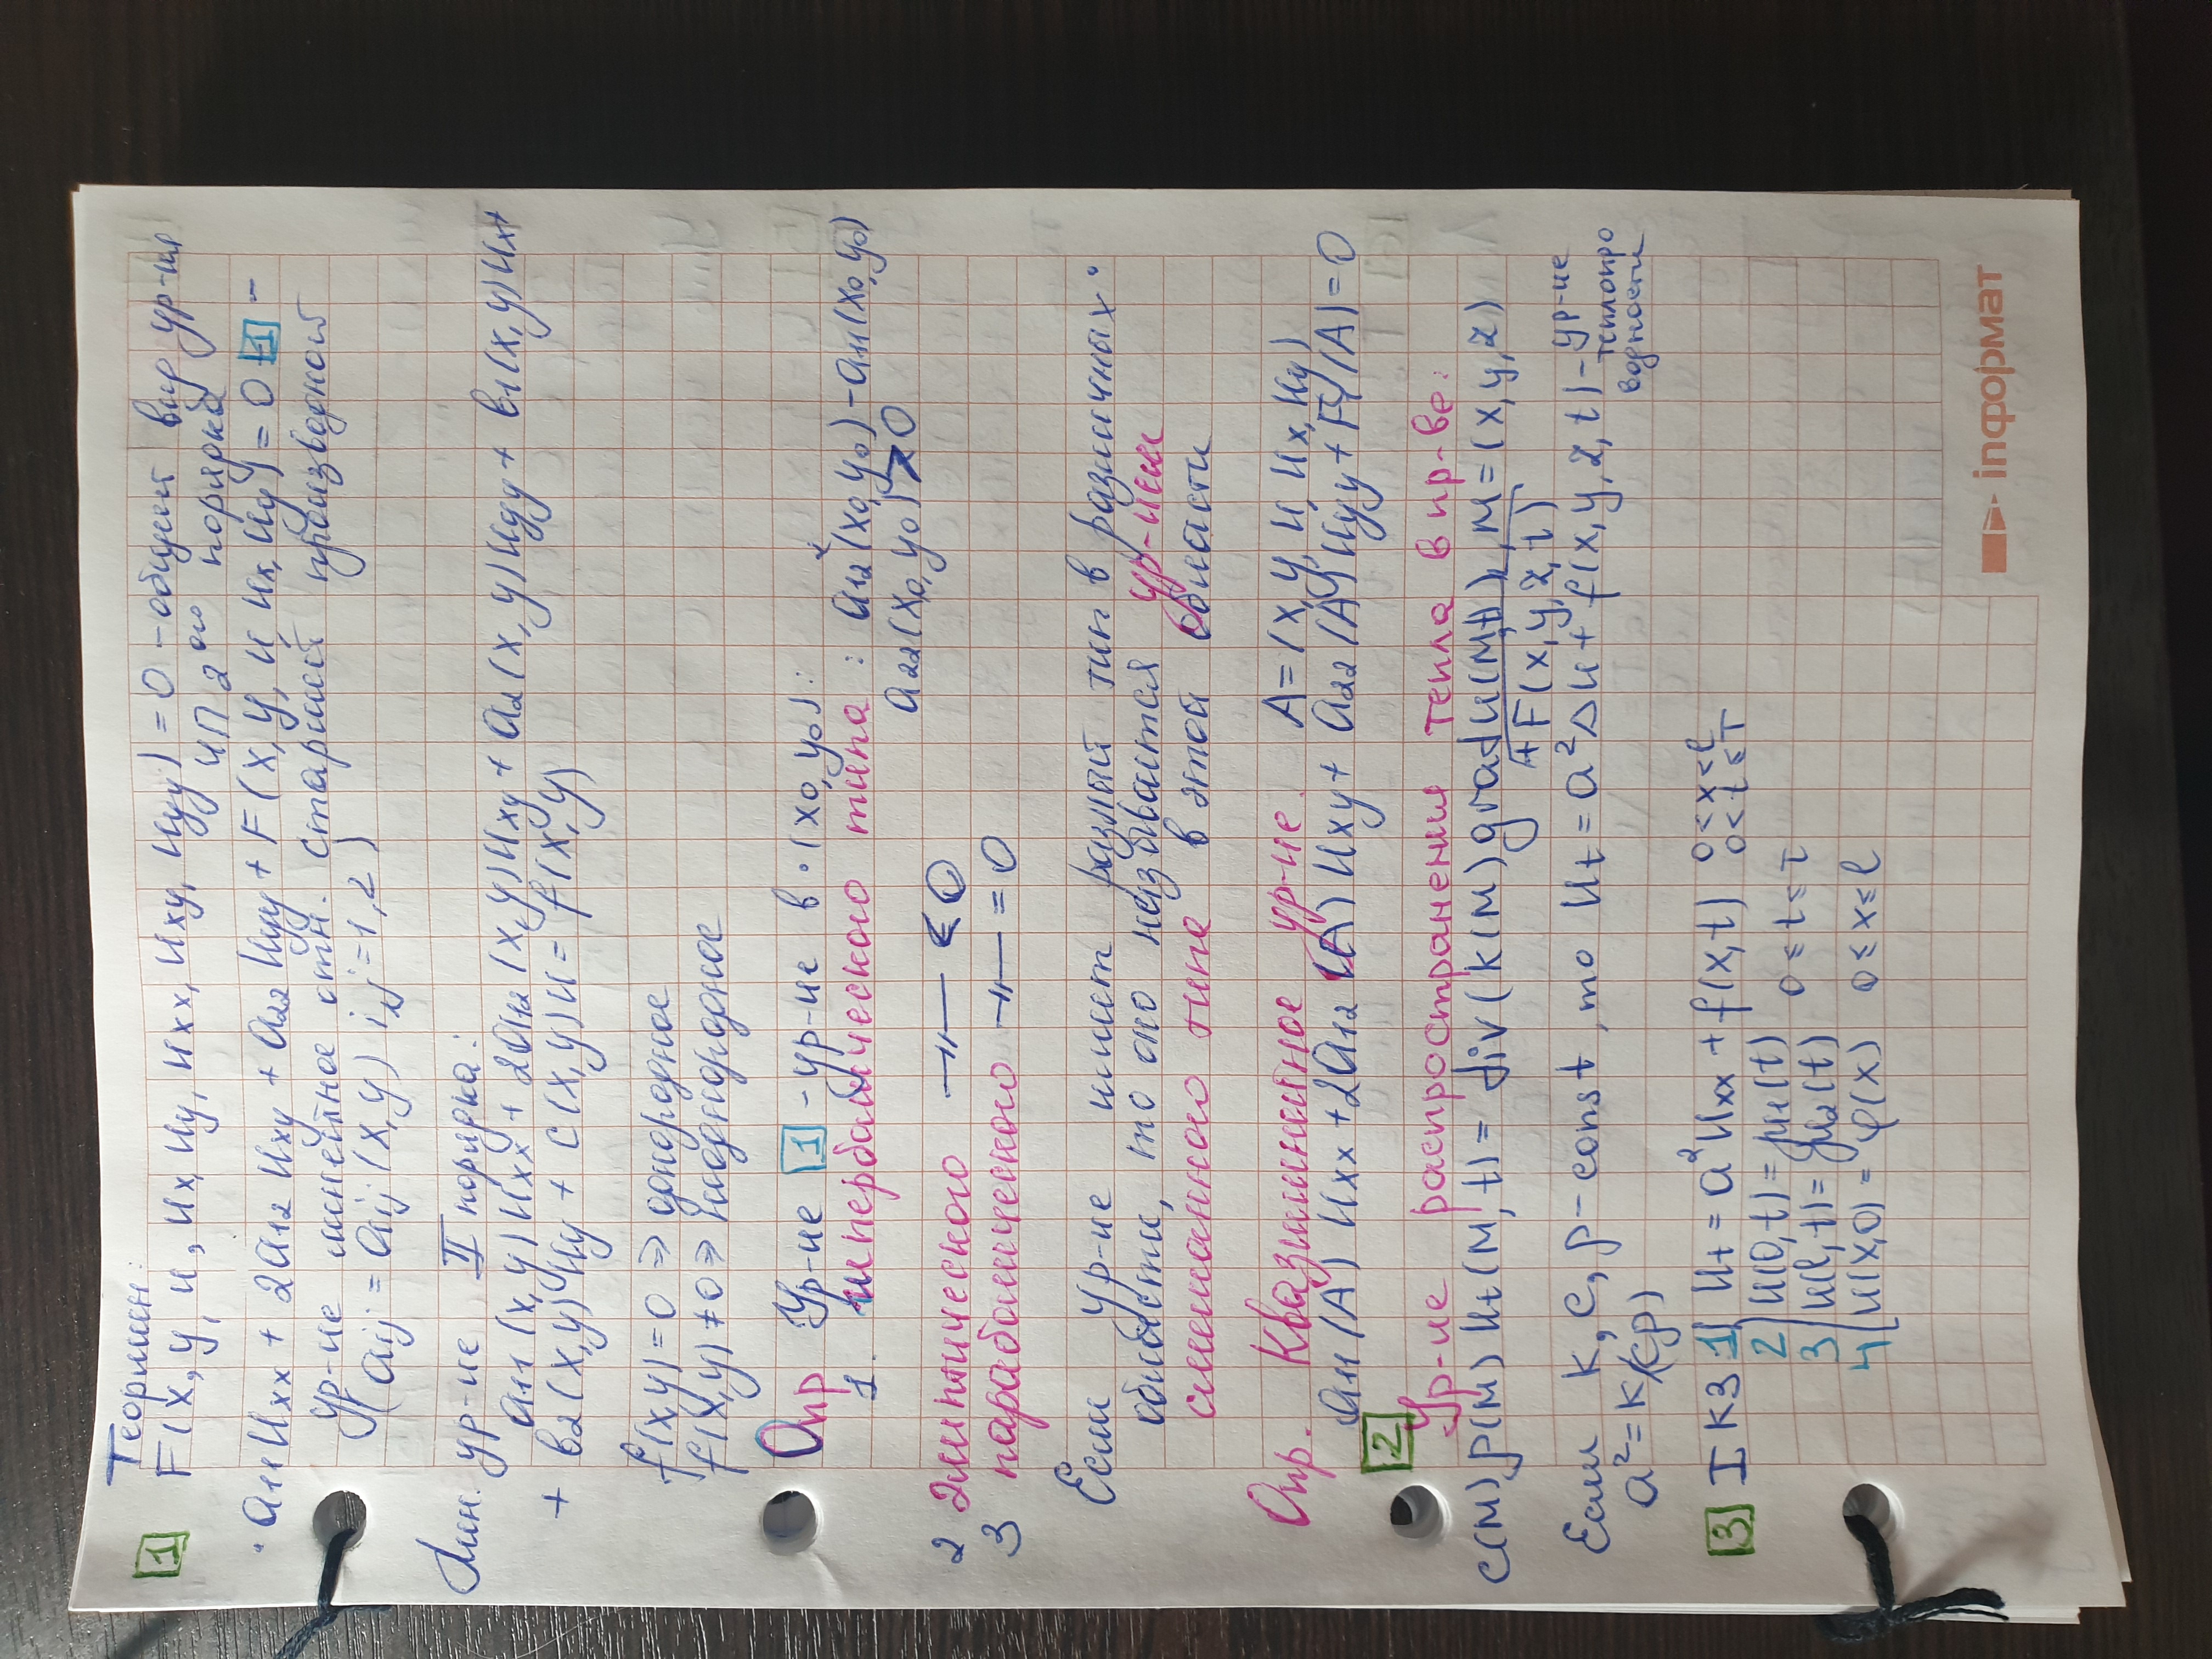 Теормин:
1 F(x, y, u, ux, uy, uxx, uxy, uyy) = 0 - общий вид ур-ия
чп 2ого порядка
· a11 uxx + 2a12 uxy + a22 uyy + F(x, y, u, ux, uy) = 0 1 -
ур-ие линейное отн. старшей производной
(aij = aij(x, y) i,j = 1,2)
Лин. ур-ие II порядка:
a11(x, y) uxx + 2a12(x, y) uxy + a22(x, y) uyy + b1(x, y) ux+
+ b2(x, y) uy + c(x, y) u = f(x, y)
f(x, y) = 0 => однородное
f(x, y) ≠ 0 => неоднородное
Опр Ур-ие 1 - ур-ие в · (x0, y0):
1. гиперболического типа: a12²(x0, y0) - a11(x0, y0)
a22(x0, y0) > 0
2 Эллиптического —〃— < 0
3 параболического —〃— = 0
Если ур-ие имеет разный тип в различных ·
области, то оно называется ур-ием
смешанного типа в этой области
Опр. Квазилинейное ур-ие. A = (x, y, u, ux, uy)
a11(A) uxx + 2a12(A) uxy + a22(A) uyy + F(A) = 0
2 Ур-ие распространения тепла в пр-ве:
c(M) ρ(M) ut(M, t) = div(k(M) grad u(M,t)), M = (x, y, z)
+ F(x, y, z, t)
Если k, c, ρ - const, то ut = a² Δu + f(x, y, z, t) - ур-ие
теплопро
водности
a² = k/(cρ)
3 I КЗ 1 ut = a² uxx + f(x, t) 0 < x < l
0 < t ≤ T
2 u(0, t) = μ1(t) 0 ≤ t ≤ T
3 u(l, t) = μ2(t)
4 u(x, 0) = φ(x) 0 ≤ x ≤ l
inформат